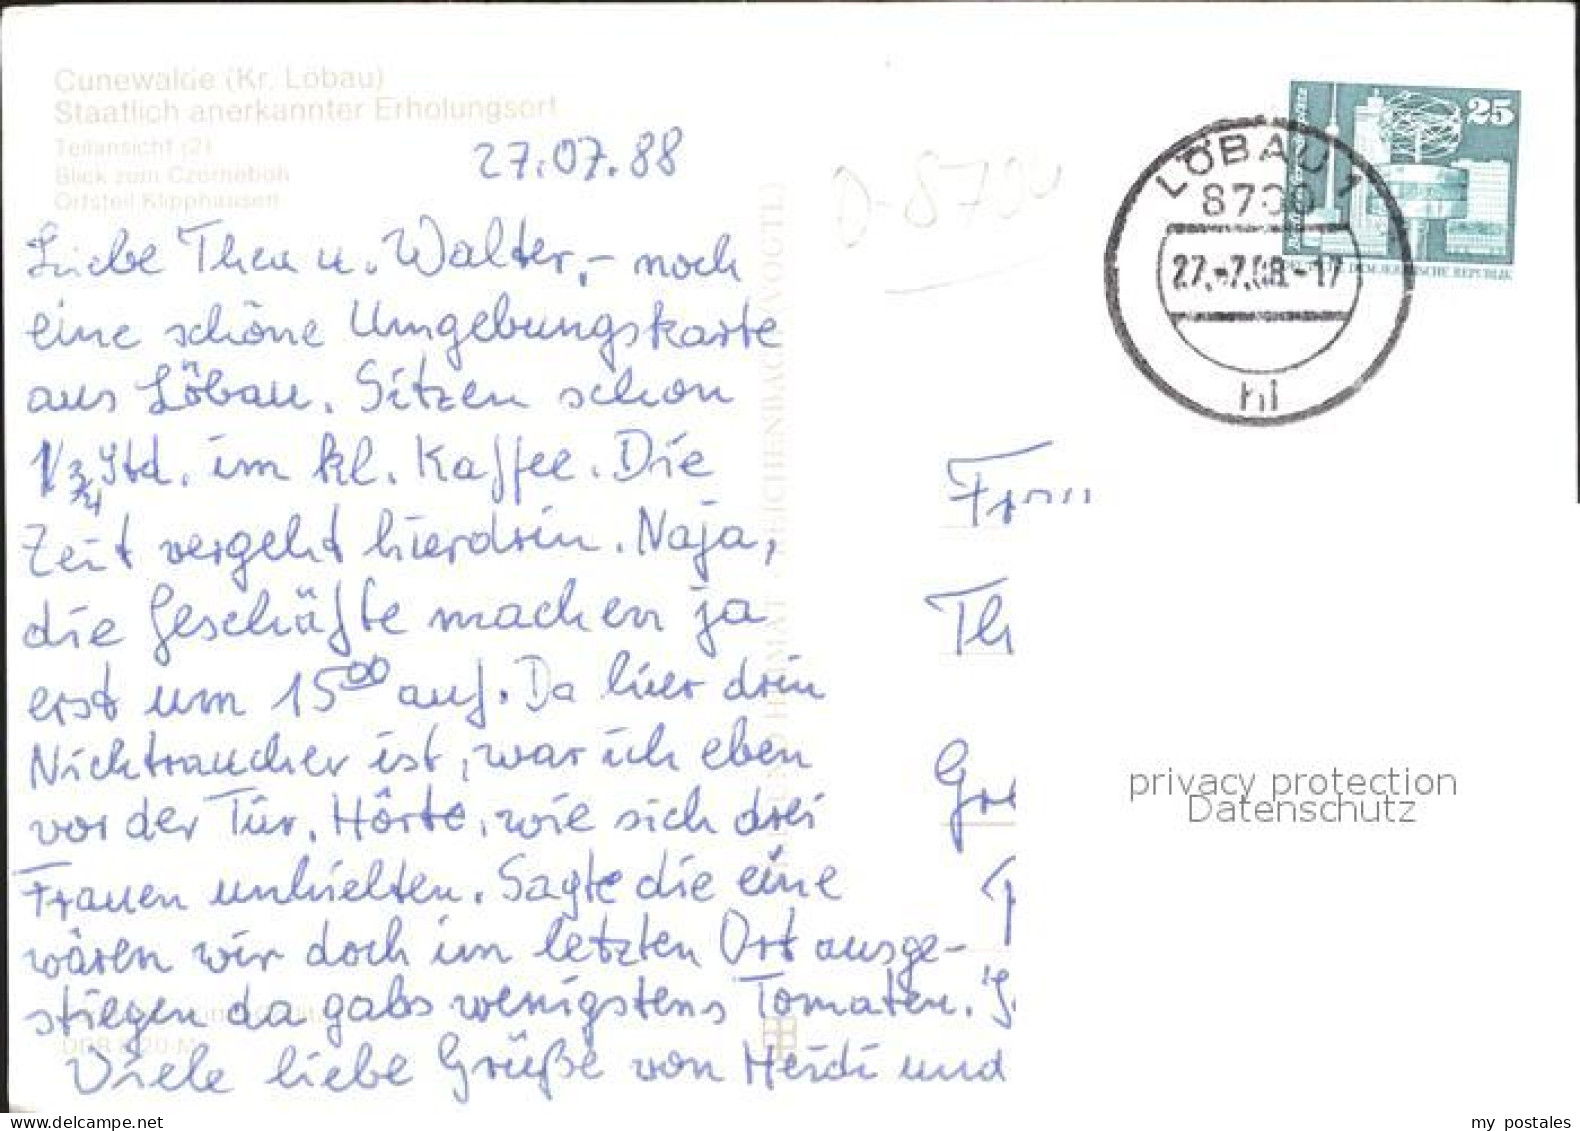 Cunewalde (Kr. Löbau)
Staatlich anerkannter Erholungsort
Teilansicht (2)
Blick zum Czorneboh
Ortsteil Klipphausen
27.07.88
Liebe Thea u. Walter, - noch
eine schöne Umgebungskarte
aus Löbau. Sitzen schon
3/4 Std. im kl. Kaffee. Die
Zeit vergeht hierdrin. Naja,
die Geschäfte machen ja
erst um 15⁰⁰ auf. Da hier drin
Nichtraucher ist, war ich eben
vor der Tür. Hörte, wie sich drei
Frauen unhielten. Sagte die eine
wären wir doch im letzten Ort ausge-
stiegen da gabs wenigstens Tomaten.
Viele liebe Grüße von Heidi und
D-8700
25
DEUTSCHE DEMOKRATISCHE REPUBLIK
LÖBAU 1
8700
27.-7.88-17
hi
Frau
Th
privacy protection
Datenschutz
my postales
www.delcampe.net